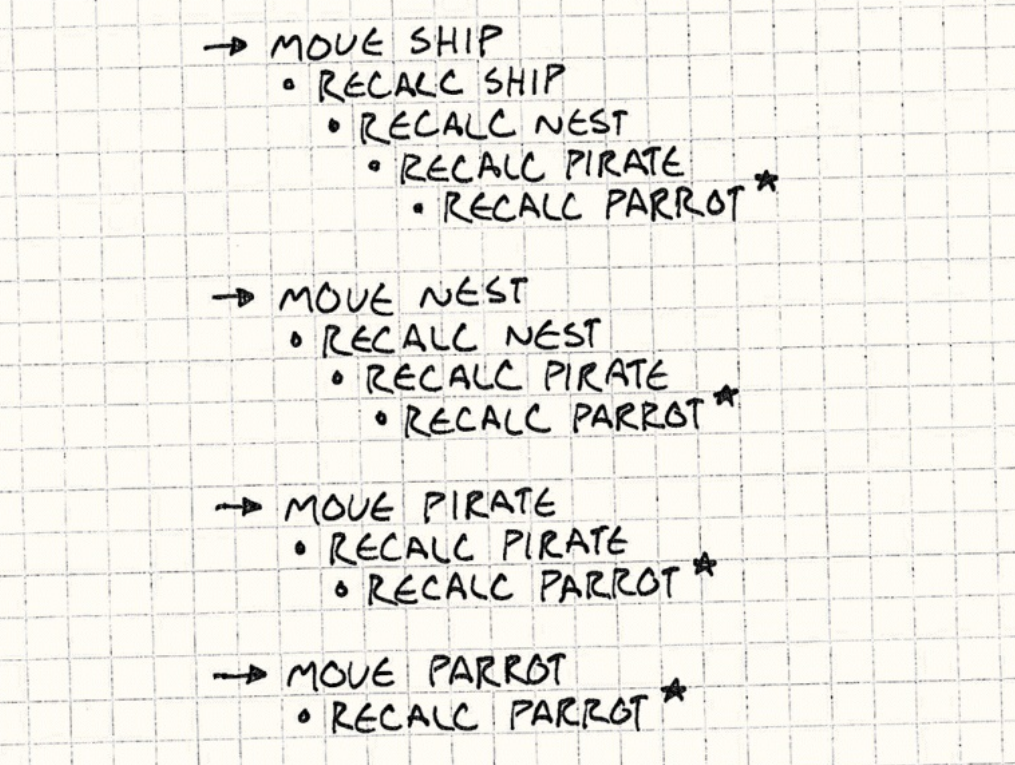 → MOVE SHIP
• RECALC SHIP
• RECALC NEST
• RECALC PIRATE
• RECALC PARROT★
→ MOVE NEST
• RECALC NEST
• RECALC PIRATE
• RECALC PARROT★
→ MOVE PIRATE
• RECALC PIRATE
• RECALC PARROT★
→ MOVE PARROT
• RECALC PARROT★